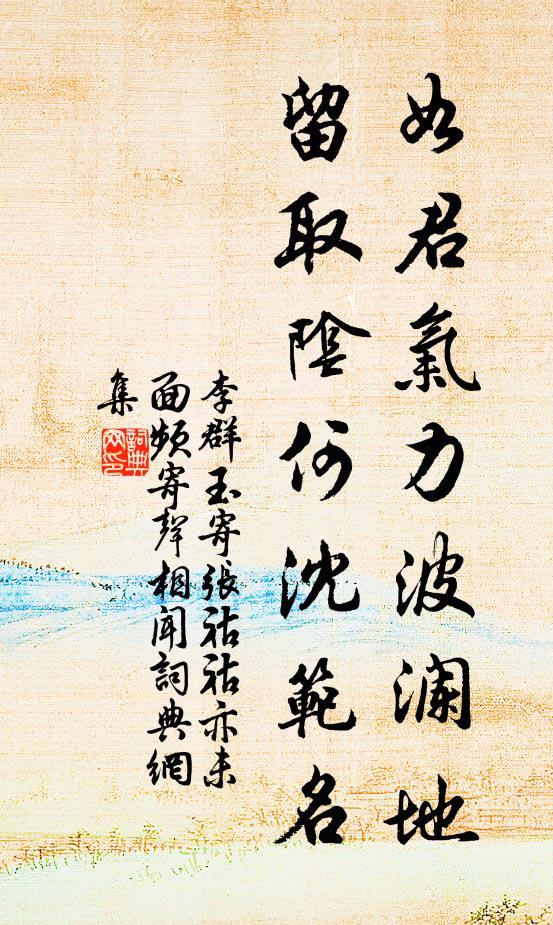 如君氣力波瀾地
留取陰何沈範名
李群玉寄張祜祜亦未
面頻寄聲相聞詞典網
集
詞典